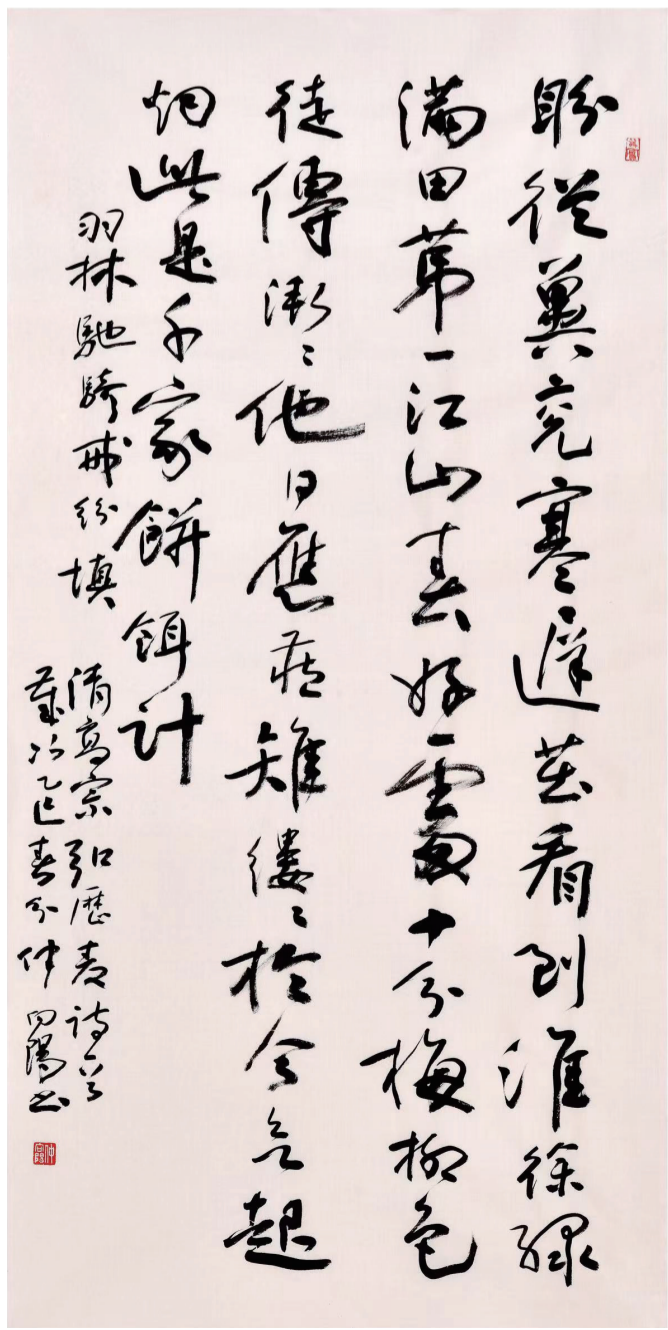 盼從冀兗寒遲茁看到淮徐綠
滿田第一江山春好處十分梅柳色
徒傳漸〻他日應雉縷〻於今起
烟此是千家餅餌計
羽林馳騎戒紛填
清高宗弘歷麦詩一首
歲次乙巳春分仲向陽書